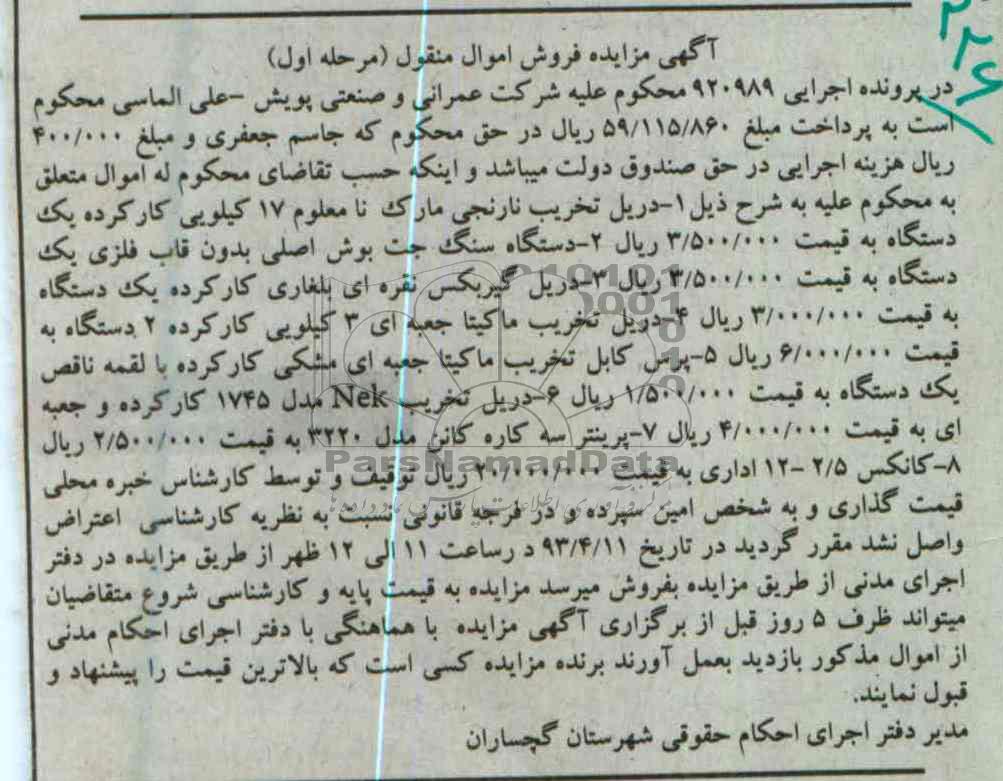 ۲۲۶
آگهی مزایده فروش اموال منقول (مرحله اول)
در پرونده اجرایی ۹۲۰۹۸۹ محکوم علیه شرکت عمرانی و صنعتی پویش -علی الماسی محکوم
است به پرداخت مبلغ ۵۹/۱۱۵/۸۶۰ ریال در حق محکوم که جاسم جعفری و مبلغ ۴۰۰/۰۰۰
ریال هزینه اجرایی در حق صندوق دولت میباشد و اینکه حسب تقاضای محکوم له اموال متعلق
به محکوم علیه به شرح ذیل ۱-دریل تخریب نارنجی مارک نا معلوم ۱۷ کیلویی کارکرده یک
دستگاه به قیمت ۳/۵۰۰/۰۰۰ ریال ۲-دستگاه سنگ جت بوش اصلی بدون قاب فلزی یک
دستگاه به قیمت ۳/۵۰۰/۰۰۰ ریال ۳-دریل گیربکس نقره ای بلغاری کارکرده یک دستگاه
به قیمت ۳/۰۰۰/۰۰۰ ریال ۴-دریل تخریب ماکیتا جعبه ای ۳ کیلویی کارکرده ۲ دستگاه به
قیمت ۶/۰۰۰/۰۰۰ ریال ۵-پرس کابل تخریب ماکیتا جعبه ای مشکی کارکرده با لقمه ناقص
یک دستگاه به قیمت ۱/۵۰۰/۰۰۰ ریال ۶-دریل تخریب Nek مدل ۱۷۴۵ کارکرده و جعبه
ای به قیمت ۴/۰۰۰/۰۰۰ ریال ۷-پرینتر سه کاره کانن مدل ۳۲۲۰ به قیمت ۲/۵۰۰/۰۰۰ ریال
۸-کانکس ۲/۵ -۱۲ اداری به قیمت ۲۰/۰۰۰/۰۰۰ ریال توقیف و توسط کارشناس خبره محلی
ParsNamadData
قیمت گذاری و به شخص امین سپرده و در فرجه قانونی نسبت به نظریه کارشناسی اعتراض
واصل نشد مقرر گردید در تاریخ ۹۳/۴/۱۱ د رساعت ۱۱ الی ۱۲ ظهر از طریق مزایده در دفتر
اجرای مدنی از طریق مزایده بفروش میرسد مزایده به قیمت پایه و کارشناسی شروع متقاضیان
میتواند ظرف ۵ روز قبل از برگزاری آگهی مزایده با هماهنگی با دفتر اجرای احکام مدنی
از اموال مذکور بازدید بعمل آورند برنده مزایده کسی است که بالاترین قیمت را پیشنهاد و
قبول نمایند.
مدیر دفتر اجرای احکام حقوقی شهرستان گچساران